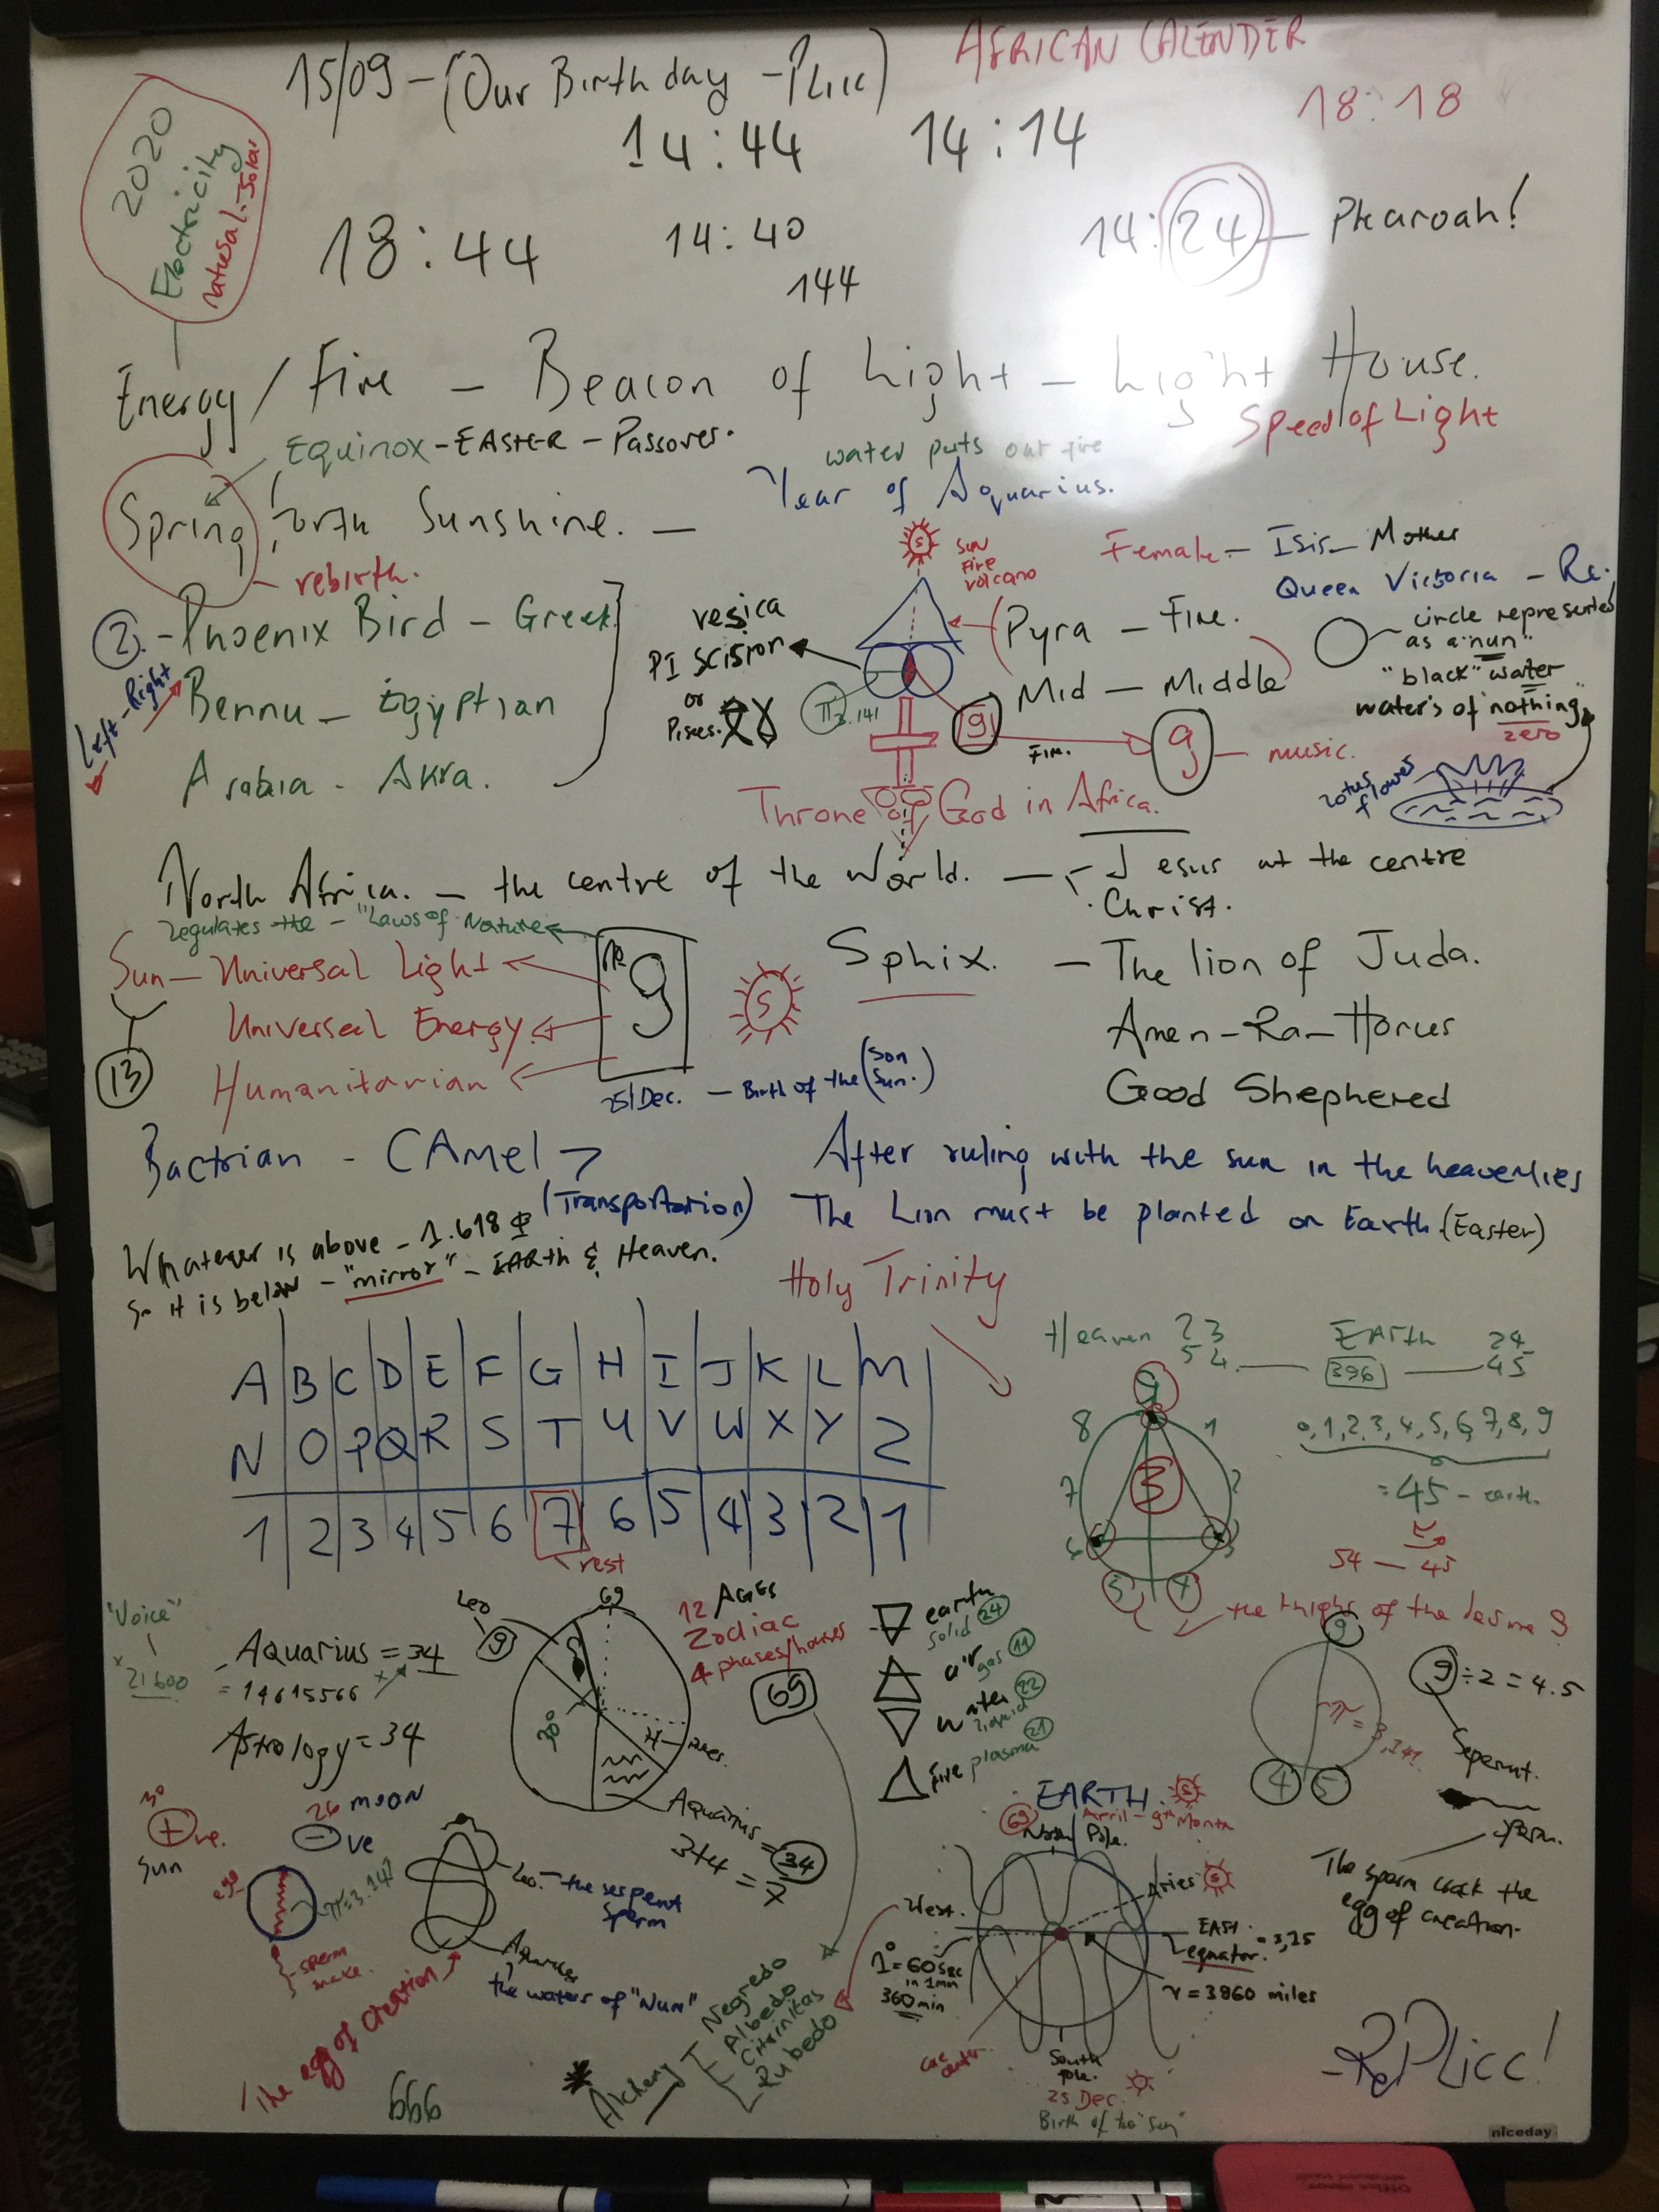 15/09 - (Our Birthday - Plicc)
AFRICAN CALENDER
14:44
14:14
18:18
2020
Electricity
natural-Solar
18:44
14:40
144
14:24 - Pharoah!
Energy / Fire - Beacon of Light - Light House.
Speed of Light
Equinox - EASTER - Passover.
water puts out fire
Year of Aquarius.
Spring forth Sunshine. -
rebirth.
S
Sun
Fire
volcano
Female - Isis - Mother
Queen Victoria - Re.
2. - Phoenix Bird - Greek
Left - Right
Bennu - Egyptian
Arabia - Akra.
vesica
PI Scision
or
Pisces.
π 3.141
Pyra - Fire.
Mid - Middle
9
Fire.
9 - music.
circle represented
as a "nun"
"black" water
water's of nothing
zero
lotus
flower
Throne of God in Africa.
North Africa. - the centre of the World. - Jesus at the centre
Christ.
regulates the - "Laws of Nature
Sun - Universal Light
Universal Energy
Humanitarian
13
9
S
Sphix. - The lion of Juda.
Amen-Ra-Horus
Good Shephered
25/Dec. - Birth of the (Son
Sun.)
Bactrian - CAmel
(Transportation)
After ruling with the sun in the heavenlies
The Lion must be planted on Earth (Easter)
Whatever is above - 1.618 Φ
So it is below - "mirror" - EARth & Heaven.
Holy Trinity
A B C D E F G H I J K L M
N O P Q R S T U V W X Y Z
1 2 3 4 5 6 7 6 5 4 3 2 1
rest
Heaven 23
54
396
EARth 24
45
9
8 1
7 3 2
6 3
5 4
0,1,2,3,4,5,6,7,8,9
= 45 - earth.
54 - 45
"Voice"
21600
Aquarius = 34
= 14615566
Astrology = 34
Leo
9
69
30°
Aquarius = 34
3+4 = 7
12 AGES
Zodiac
4 phases/houses
69
earth
solid 24
air
gas 11
water 22
liquid
fire plasma 21
9
9 ÷ 2 = 4.5
π = 3,141
4 5
Seperat.
sperm.
The sperm crack the
egg of creation.
30
+ve.
Sun
26 moon
-ve
egg
π=3.141
sperm
snake.
Leo. - the serpent
sperm
the waters of "Nun"
The egg of creation
666
Alchemy
Negredo
Albedo
Citrinitas
Rubedo
EARTH
S
April - 9th Month
69
North Pole.
Aries S
West.
EAst.
equator. = 3,15
1° = 60 sec
in 1 min
360 min
r = 3960 miles
core
center.
South
Pole.
25 Dec.
Birth of the "Sun"
-RePlicc!
niceday